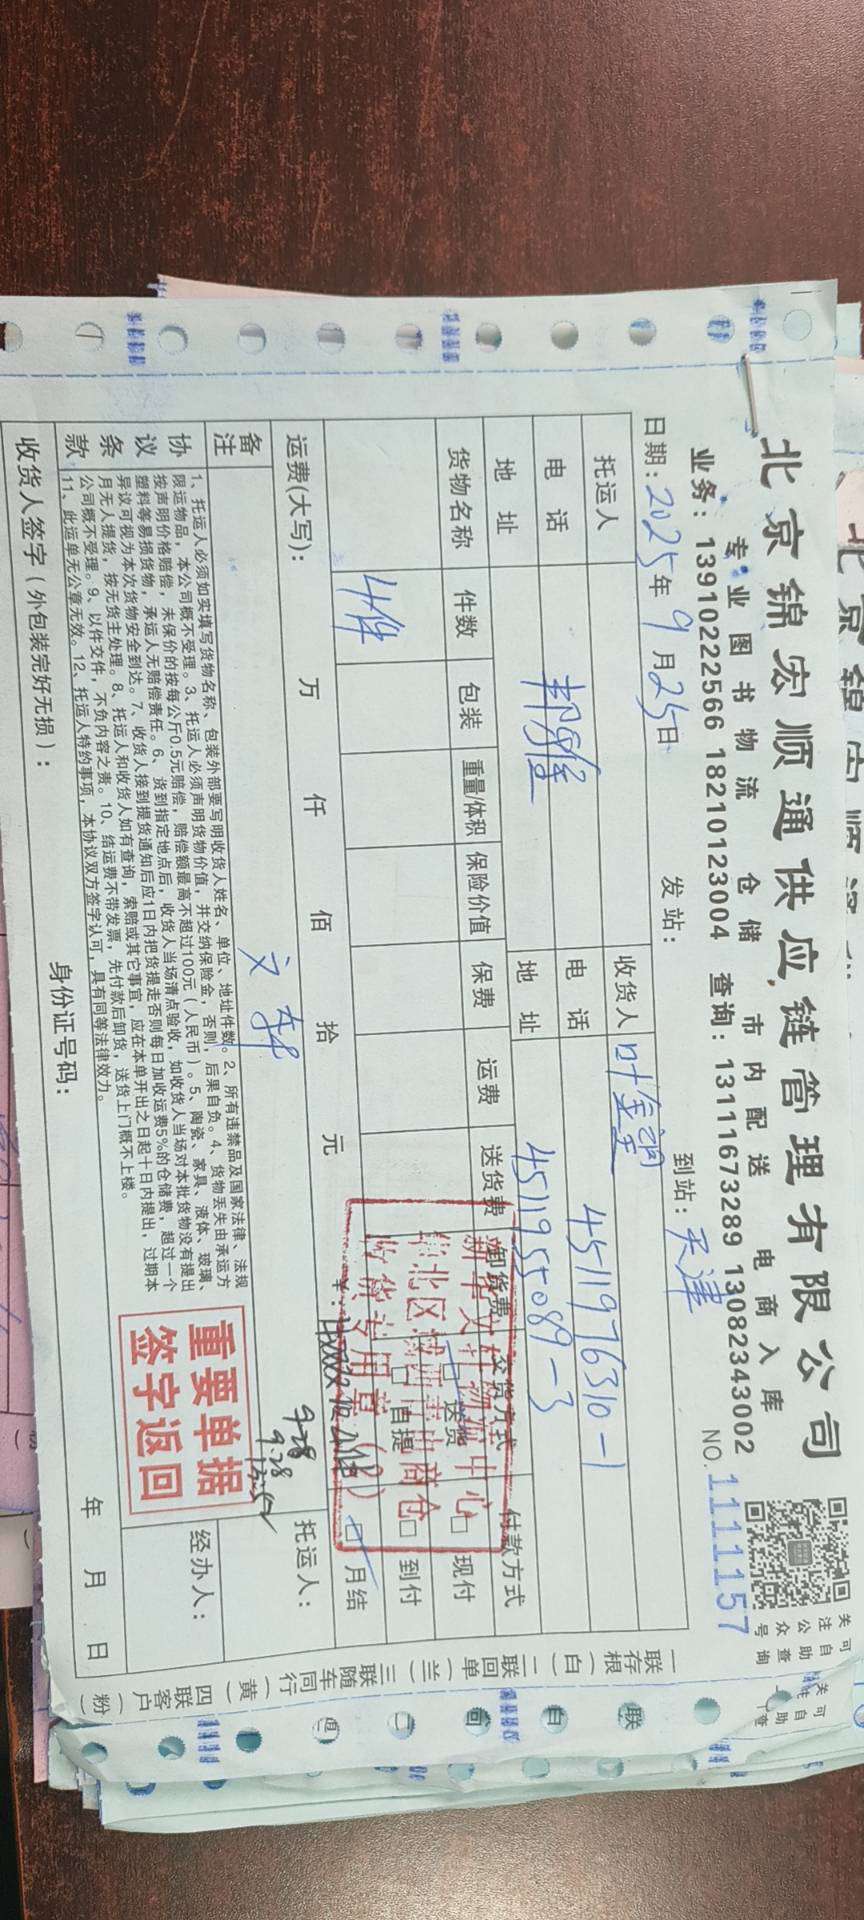 北京锦宏顺通供应链管理有限公司
专业图书物流 仓储 市内配送 电商入库
业务：13910222566 18210123004 查询：13111673289 13082343002
关注公众号
可自助查询
NO. 1111157
日期：2025年9月25日 发站： 到站：天津
托运人 收货人
电话 电话 4511976310-1
地址 地址 4511955089-3
货物名称 件数 包装 重量/体积 保险价值 保费 运费 送货费 卸货费 交货方式 付款方式
4件
送货 现付
自提 到付
月结
收货专用章
运费(大写)： 万 仟 佰 拾 元 ¥：
备注
9.28
9.28
托运人：
经办人：
协议条款
1、托运人必须如实填写货物名称、包装外部要写明收货人姓名、单位、地址件数。2、所有违禁品及国家法律、法规
限运物品，本公司概不受理。3、托运人必须声明货物价值，并交纳保险金，否则，后果自负。4、货物丢失由承运方
按声明价格赔偿，未保价的按每公斤0.5元赔偿，赔偿额最高不超过100元（人民币）。5、陶瓷、家具、液体、玻璃、
塑料等易损货物，承运人无赔偿责任。6、货到指定地点后，收货人当场清点验收，如收货人当场对本批货物没有提出
异议可视为本次货物安全到达。7、收货人接到提货通知后应1日内把货提走否则每日加收运费5%的仓储费，超过一个
月无人提货，按无货主处理。8、托运人和收货人如有查询，索赔或其它事宜，应在本单开出之日起十日内提出，过期本
公司概不受理。9、以件交件，不负内容之责。10、结运费不带发票，先付款后卸货，送货上门概不上楼。
11、此运单无公章无效。12、托运人特约事项，本协议双方签字认可，具有同等法律效力。
重要单据
签字返回
收货人签字（外包装完好无损）： 身份证号码： 年 月 日
一联存根（白） 二联回单（兰） 三联随车同行（黄） 四联客户（粉）